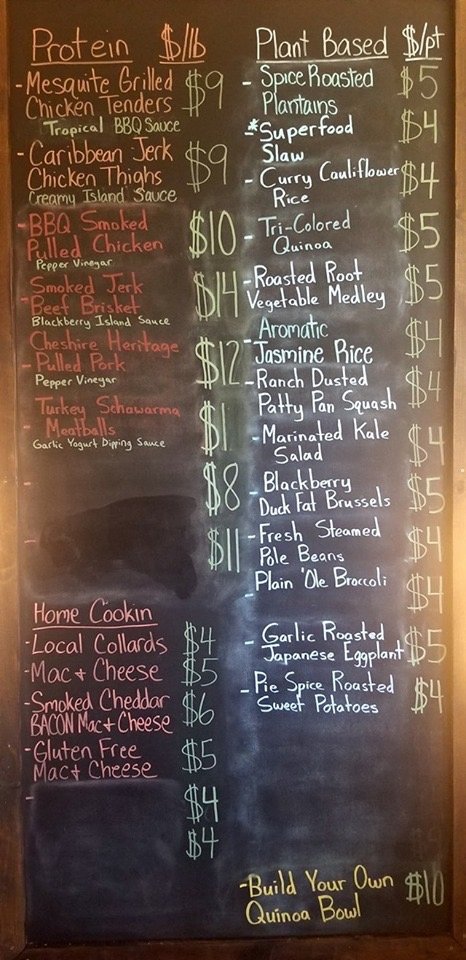 Protein $/lb
- Mesquite Grilled $9
Chicken Tenders
Tropical BBQ Sauce
- Caribbean Jerk $9
Chicken Thighs
Creamy Island Sauce
- BBQ Smoked $10
Pulled Chicken
Pepper Vinegar
Smoked Jerk $14
- Beef Brisket
Blackberry Island Sauce
Cheshire Heritage $12
- Pulled Pork
Pepper Vinegar
Turkey Schawarma
- Meatballs
Garlic Yogurt Dipping Sauce
- $8
- $11
Home Cookin
- Local Collards $4
- Mac + Cheese $5
- Smoked Cheddar $6
BACON Mac + Cheese
- Gluten Free $5
Mac + Cheese
- $4
$4
Plant Based $/pt
- Spice Roasted $5
Plantains
*Superfood $4
- Slaw
- Curry Cauliflower $4
Rice
- Tri-Colored $5
Quinoa
- Roasted Root $5
Vegetable Medley
- Aromatic $4
Jasmine Rice
- Ranch Dusted $4
Patty Pan Squash
- Marinated Kale $4
Salad
- Blackberry $5
Duck Fat Brussels
- Fresh Steamed $4
Pole Beans
- Plain 'Ole Broccoli $4
- Garlic Roasted $5
Japanese Eggplant
- Pie Spice Roasted $4
Sweet Potatoes
- Build Your Own $10
Quinoa Bowl